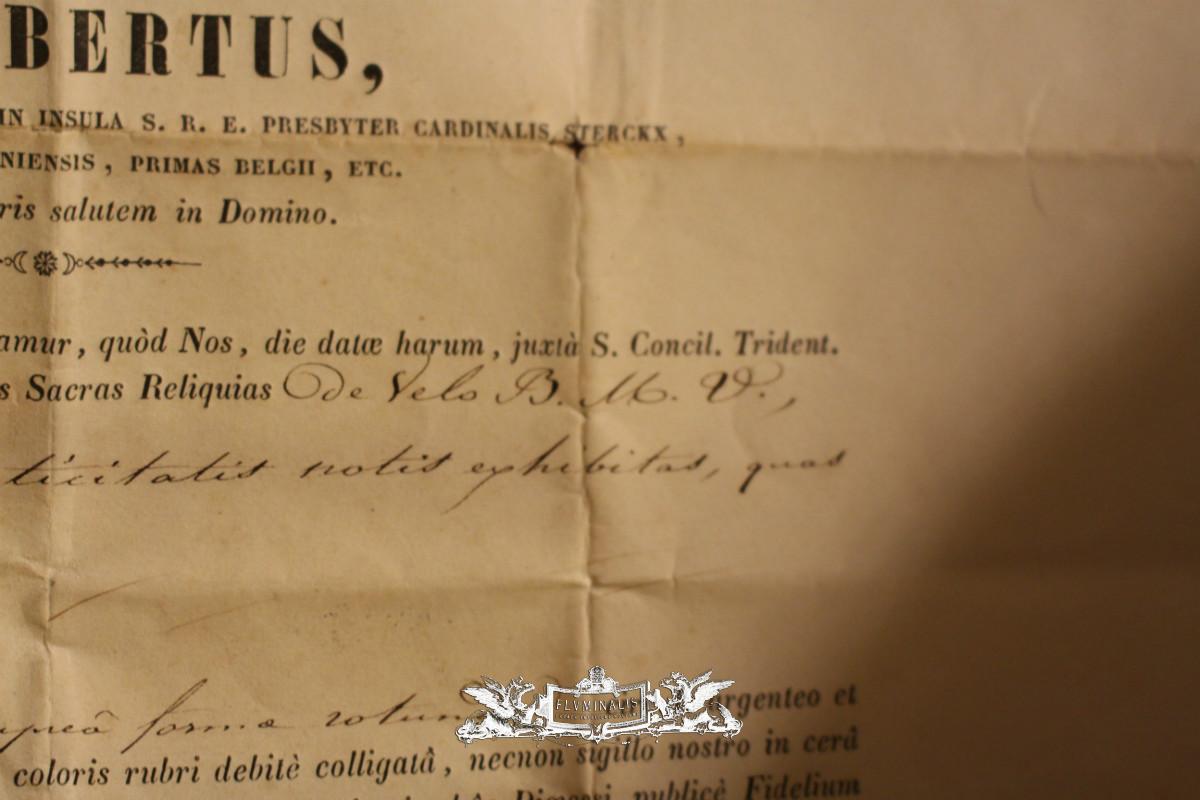 BERTUS,
IN INSULA S. R. E. PRESBYTER CARDINALIS STERCKX,
NIENSIS, PRIMAS BELGII, ETC.
ris salutem in Domino.
amur, quòd Nos, die datæ harum, juxtà S. Concil. Trident.
s Sacras Reliquias De Velo B. M. V.,
ticitatis notis exhibitas, quas
upreâ formæ rotun
FLVMINALIS
rgenteo et
coloris rubri debitè colligatâ, necnon sigillo nostro in cerâ
publicè Fidelium